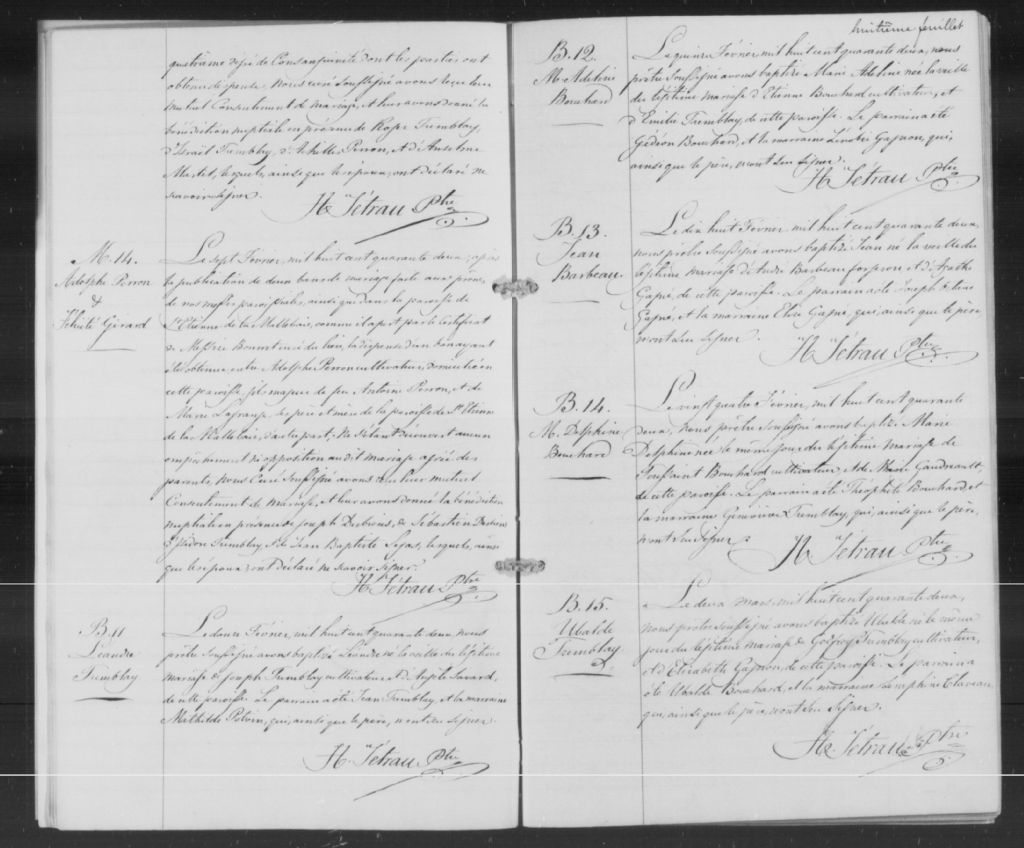 quatrième degré de Consanguinité dont les parties ont
obtenu dispense. Nous curé Soussigné avons reçu leur
mutuel Consentement de mariage, et leur avons donné la
bénédiction nuptiale en présence de Roger Tremblay,
d'Israël Tremblay, d'Achille Perron, et d'Anselme
Maltet, lesquels, ainsi que les époux, ont déclaré ne
savoir signer.
Hr. Tétrau Ptre
M. 14.
Adolphe Perron
&
Félicité Girard
Le sept Février, mil huit cent quarante deux; après
la publication de deux bans de mariage faite aux prônes
de nos messes paroissiales, ainsi que dans la paroisse de
St Etienne de la Malbaie, comme il apert par le certificat
de Messire Bourret curé du lieu, la dispense d'un ban ayant
été obtenue entre Adolphe Perron cultivateur, domicilié en
cette paroisse, fils majeur de feu Antoine Perron, et de
Marie Lagrange, ses père et mère de la paroisse de St Etienne
de la Malbaie, d'autre part; Ne s'étant découvert aucun
empêchement ni opposition au dit mariage agréé des
parents, nous Curé Soussigné avons reçu leur mutuel
Consentement de mariage, et leur avons donné la bénédiction
nuptiale en présence de Joseph Desbiens, de Sébastien Desbiens
d'Isidore Tremblay et de Jean Baptiste, lesquels, ainsi
que les époux, ont déclaré ne savoir signer.
Hr. Tétrau Ptre
B. 11
Léandre
Tremblay
Le douze Février, mil huit cent quarante deux, nous
prêtre soussigné avons baptisé Léandre né la veille du légitime
mariage de Joseph Tremblay cultivateur et d'Angèle Savard,
de cette paroisse. Le parrain a été Jean Tremblay, et la marraine
Mathilde Potvin, qui, ainsi que le père, n'ont su signer.
Hr. Tétrau Ptre
huitième feuillet
B. 12.
M. Adeline
Bouchard
Le quinze Février mil huit cent quarante deux, nous
prêtre soussigné avons baptisé Marie Adeline née la veille
du légitime mariage d'Etienne Bouchard cultivateur, et
d'Emélie Tremblay, de cette paroisse. Le parrain a été
Gédéon Bouchard, et la marraine Lénobée Gagnon, qui,
ainsi que le père, n'ont su signer.
Hr. Tétrau Ptre
B. 13.
Jean
Barbeau
Le dix huit Février, mil huit cent quarante deux,
nous prêtre Soussigné avons baptisé Jean né la veille du
légitime mariage d'André Barbeau forgeron et d'Agathe
Gagné, de cette paroisse. Le parrain a été Joseph
Gagné, et la marraine Elise Gagné, qui, ainsi que le père
n'ont su signer.
Hr. Tétrau Ptre
B. 14.
M. Delphine
Bouchard
Le vingt quatre Février, mil huit cent quarante
deux, nous prêtre Soussigné avons baptisé Marie
Delphine née le même jour du légitime mariage de
Toussaint Bouchard cultivateur, et de Marie Gaudreault,
de cette paroisse. Le parrain a été Théophile Bouchard, et
la marraine Geneviève Tremblay, qui, ainsi que le père,
n'ont su signer.
Hr. Tétrau Ptre
B. 15.
Ubalde
Tremblay
Le deux mars, mil huit cent quarante deux,
nous prêtre soussigné avons baptisé Ubalde né le même
jour du légitime mariage de Godfroy Tremblay cultivateur,
et d'Elizabeth Gagnon, de cette paroisse. Le parrain a
été Ubalde Bouchard, et la marraine Séraphine Claveau
qui, ainsi que le père, n'ont su signer.
Hr. Tétrau Ptre